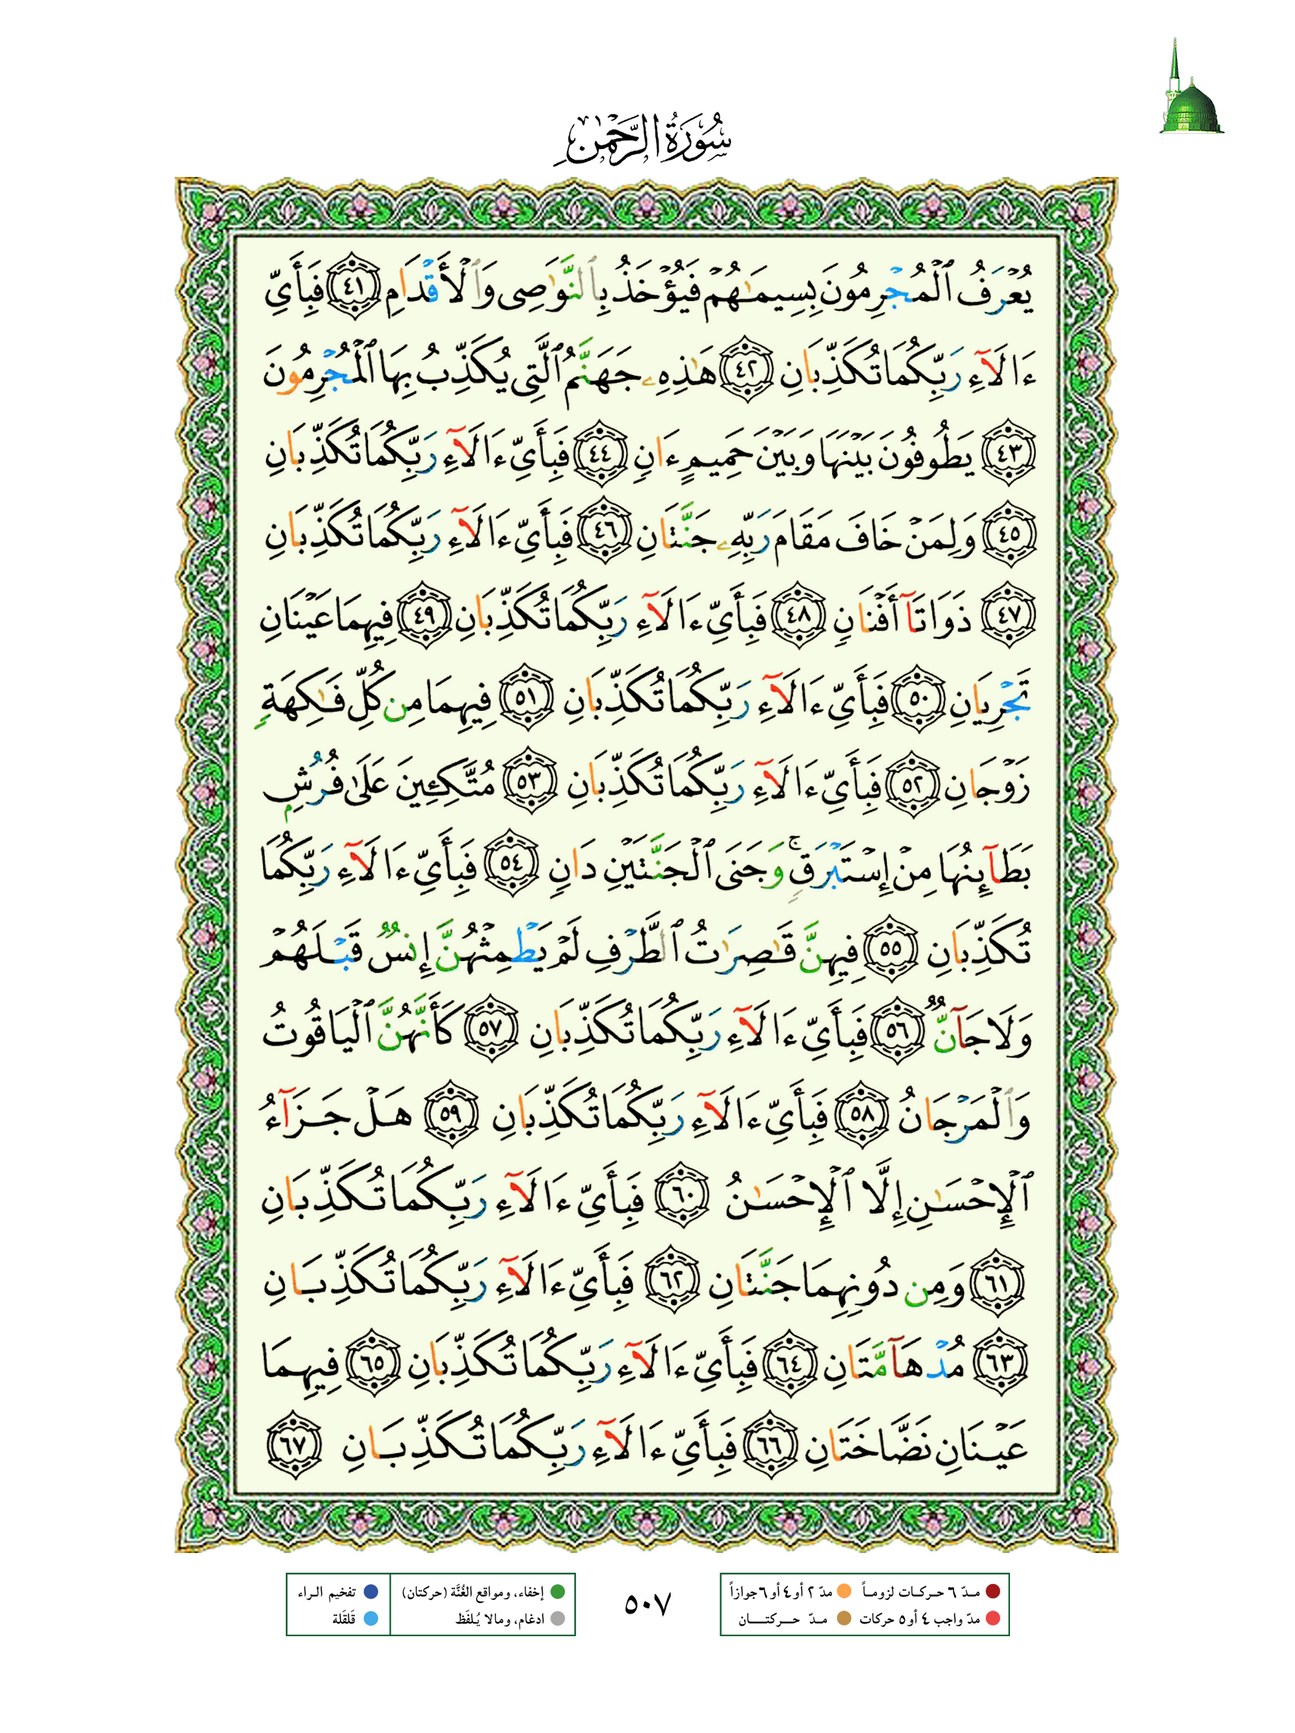 سُورَةُ الرَّحْمٰنِ
يُعْرَفُ ٱلْمُجْرِمُونَ بِسِيمَٰهُمْ فَيُؤْخَذُ بِٱلنَّوَٰصِى وَٱلْأَقْدَامِ ٤١ فَبِأَىِّ
ءَالَآءِ رَبِّكُمَا تُكَذِّبَانِ ٤٢ هَٰذِهِۦ جَهَنَّمُ ٱلَّتِى يُكَذِّبُ بِهَا ٱلْمُجْرِمُونَ
٤٣ يَطُوفُونَ بَيْنَهَا وَبَيْنَ حَمِيمٍ ءَانٍ ٤٤ فَبِأَىِّ ءَالَآءِ رَبِّكُمَا تُكَذِّبَانِ
٤٥ وَلِمَنْ خَافَ مَقَامَ رَبِّهِۦ جَنَّتَانِ ٤٦ فَبِأَىِّ ءَالَآءِ رَبِّكُمَا تُكَذِّبَانِ
٤٧ ذَوَاتَآ أَفْنَانٍ ٤٨ فَبِأَىِّ ءَالَآءِ رَبِّكُمَا تُكَذِّبَانِ ٤٩ فِيهِمَا عَيْنَانِ
تَجْرِيَانِ ٥٠ فَبِأَىِّ ءَالَآءِ رَبِّكُمَا تُكَذِّبَانِ ٥١ فِيهِمَا مِن كُلِّ فَٰكِهَةٍ
زَوْجَانِ ٥٢ فَبِأَىِّ ءَالَآءِ رَبِّكُمَا تُكَذِّبَانِ ٥٣ مُتَّكِـِٔينَ عَلَىٰ فُرُشٍۭ
بَطَآئِنُهَا مِنْ إِسْتَبْرَقٍ ۚ وَجَنَى ٱلْجَنَّتَيْنِ دَانٍ ٥٤ فَبِأَىِّ ءَالَآءِ رَبِّكُمَا
تُكَذِّبَانِ ٥٥ فِيهِنَّ قَٰصِرَٰتُ ٱلطَّرْفِ لَمْ يَطْمِثْهُنَّ إِنسٌ قَبْلَهُمْ
وَلَا جَآنٌّ ٥٦ فَبِأَىِّ ءَالَآءِ رَبِّكُمَا تُكَذِّبَانِ ٥٧ كَأَنَّهُنَّ ٱلْيَاقُوتُ
وَٱلْمَرْجَانُ ٥٨ فَبِأَىِّ ءَالَآءِ رَبِّكُمَا تُكَذِّبَانِ ٥٩ هَلْ جَزَآءُ
ٱلْإِحْسَٰنِ إِلَّا ٱلْإِحْسَٰنُ ٦٠ فَبِأَىِّ ءَالَآءِ رَبِّكُمَا تُكَذِّبَانِ
٦١ وَمِن دُونِهِمَا جَنَّتَانِ ٦٢ فَبِأَىِّ ءَالَآءِ رَبِّكُمَا تُكَذِّبَانِ
٦٣ مُدْهَآمَّتَانِ ٦٤ فَبِأَىِّ ءَالَآءِ رَبِّكُمَا تُكَذِّبَانِ ٦٥ فِيهِمَا
عَيْنَانِ نَضَّاخَتَانِ ٦٦ فَبِأَىِّ ءَالَآءِ رَبِّكُمَا تُكَذِّبَانِ ٦٧
مـدّ ٦ حـركـات لزومـاً مدّ ٢ أو ٤ أو ٦ جوازاً
مدّ واجب ٤ أو ٥ حركات مـدّ حـــركتـــــان
٥٠٧
إخفاء، ومواقع الغُنَّة (حركتان) تفخيم الـراء
ادغام، ومالا يُـلفَظ قَلقَلة